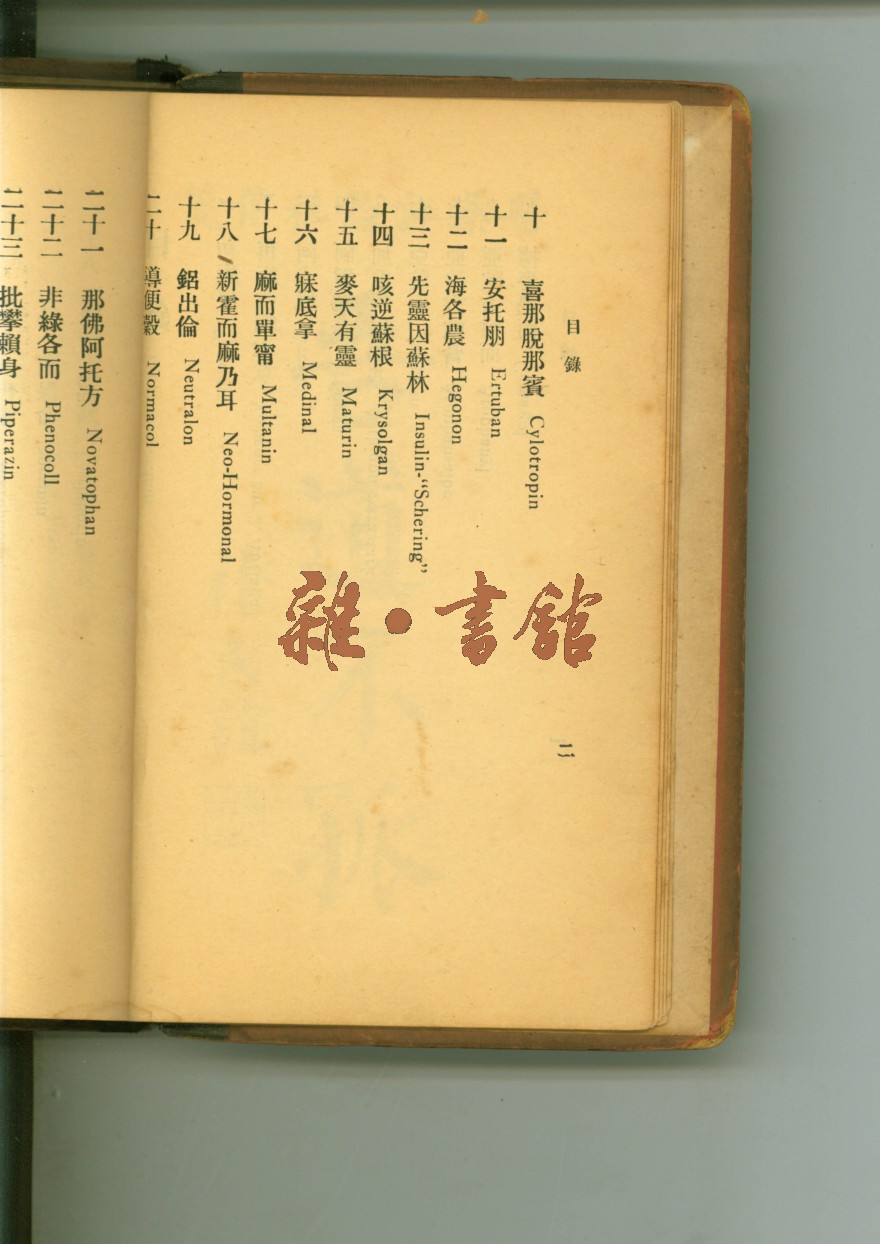 目錄
十 喜那脫那賓 Cylotropin
十一 安托朋 Ertuban
十二 海各農 Hegonon
十三 先靈因蘇林 Insulin-“Schering”
十四 咳逆蘇根 Krysolgan
十五 麥天有靈 Maturin
十六 寐底拿 Medinal
十七 麻而單甯 Multanin
十八 新霍而麻乃耳 Neo-Hormonal
十九 鋁出倫 Neutralon
二十 導便穀 Normacol
二十一 那佛阿托方 Novatophan
二十二 非綠各而 Phenocoll
二十三 批攀賴身 Piperazin
二
雜•書館